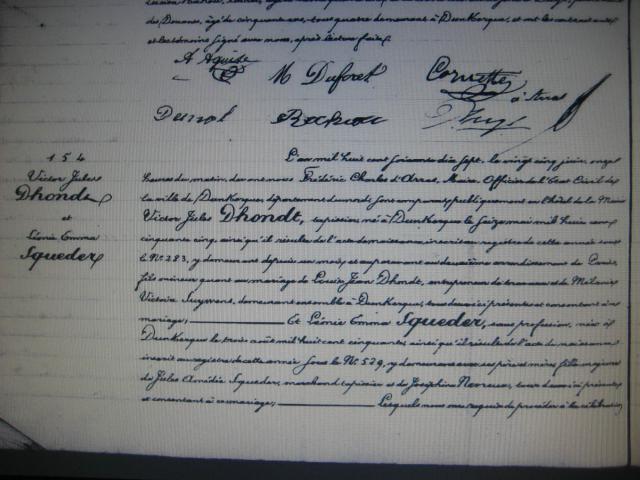 des Douanes, âgé de cinquante ans, tous quatre demeurant à Dunkerque, et ont les contractants
et les témoins signé avec nous, après lecture faite
M Duforet
Cornette
154
Victor Jules
Dhondt
et
Léonie Emma
Squeder
L'an mil huit cent soixante dix sept, le vingt cinq juin, onze
heures du matin, devant nous Frédéric Charles d'Arras, Maire, Officier de l'Etat Civil de
la ville de Dunkerque, département du nord, sont comparus publiquement en l'hôtel de la Mairie
Victor Jules Dhondt, tapissier, né à Dunkerque le seize mai mil huit cent
cinquante cinq, ainsi qu'il résulte de l'acte de naissance inscrit au registre de cette année sous
le N° 283, y demeurant depuis un mois, et auparavant au deuxième arrondissement de Paris,
fils mineur quant au mariage de Louis Jean Dhondt, entrepreneur de travaux et de Mélanie
Victoire demeurant ensemble à Dunkerque, tous deux ici présents et consentant à ce
mariage; Et Léonie Emma Squeder, sans profession, née à
Dunkerque le trois août mil huit cent cinquante, ainsi qu'il résulte de l'acte de naissance
inscrit au registre de cette année sous le N° 529, y demeurant avec ses père et mère, fille majeure
de Jules Amédée Squeder, marchand tapissier et de Joséphine tous deux ici présents
et consentant à ce mariage; Lesquels nous ont requis de procéder à la célébration